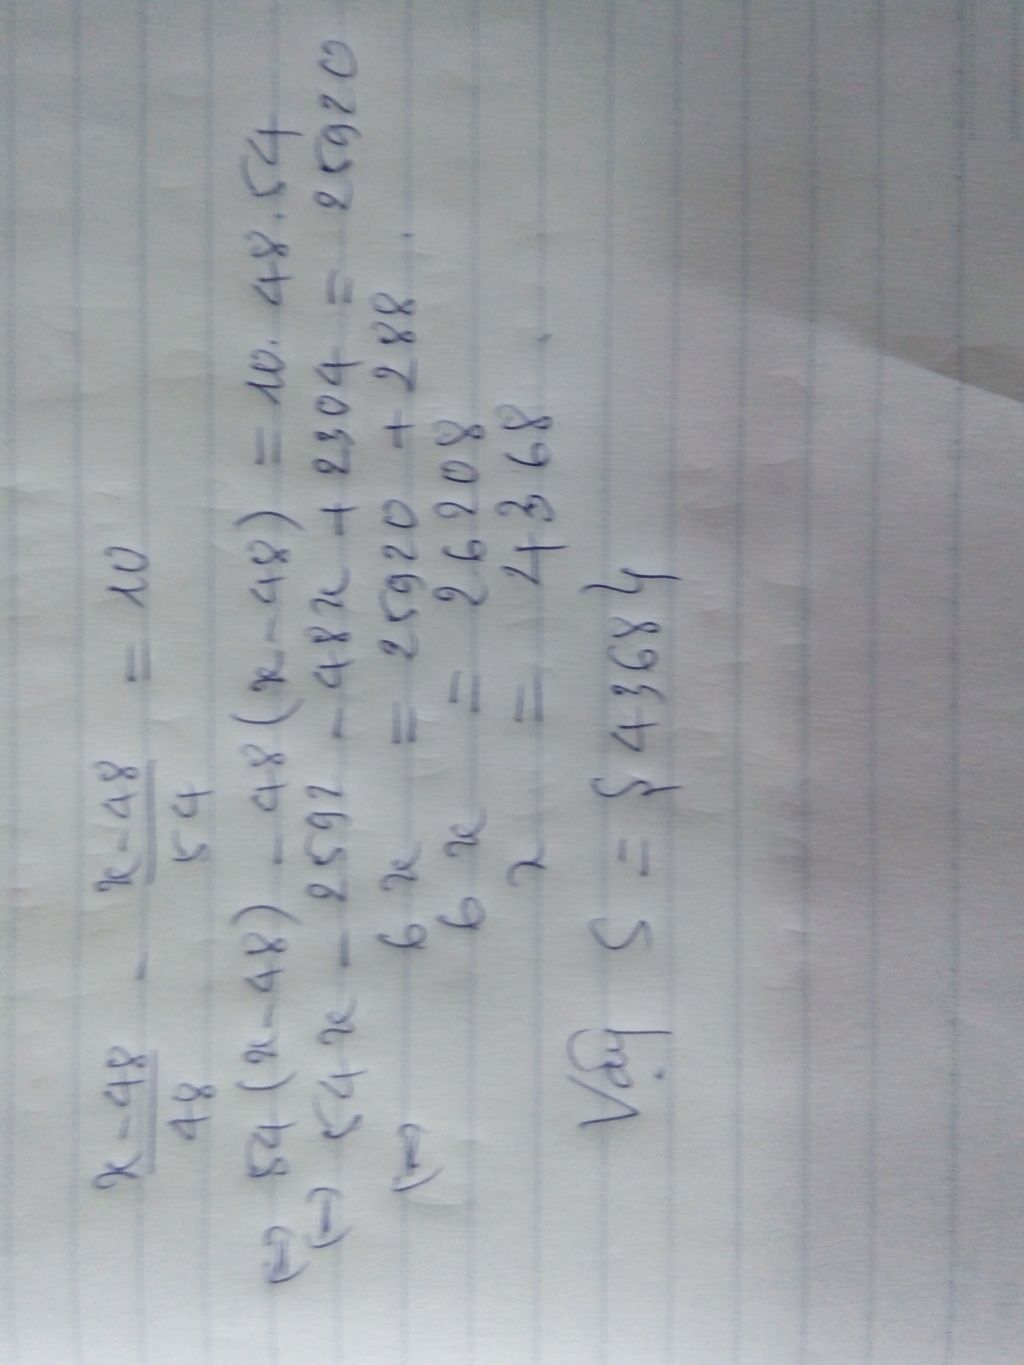 x-48/48 - x-48/54 = 10
(=) 54(x-48) - 48(x-48) = 10.48.54
(=) 54x - 2592 - 48x + 2304 = 25920
(=) 6x = 25920 + 288.
6x = 26208
x = 4368.
Vậy S = {4368}